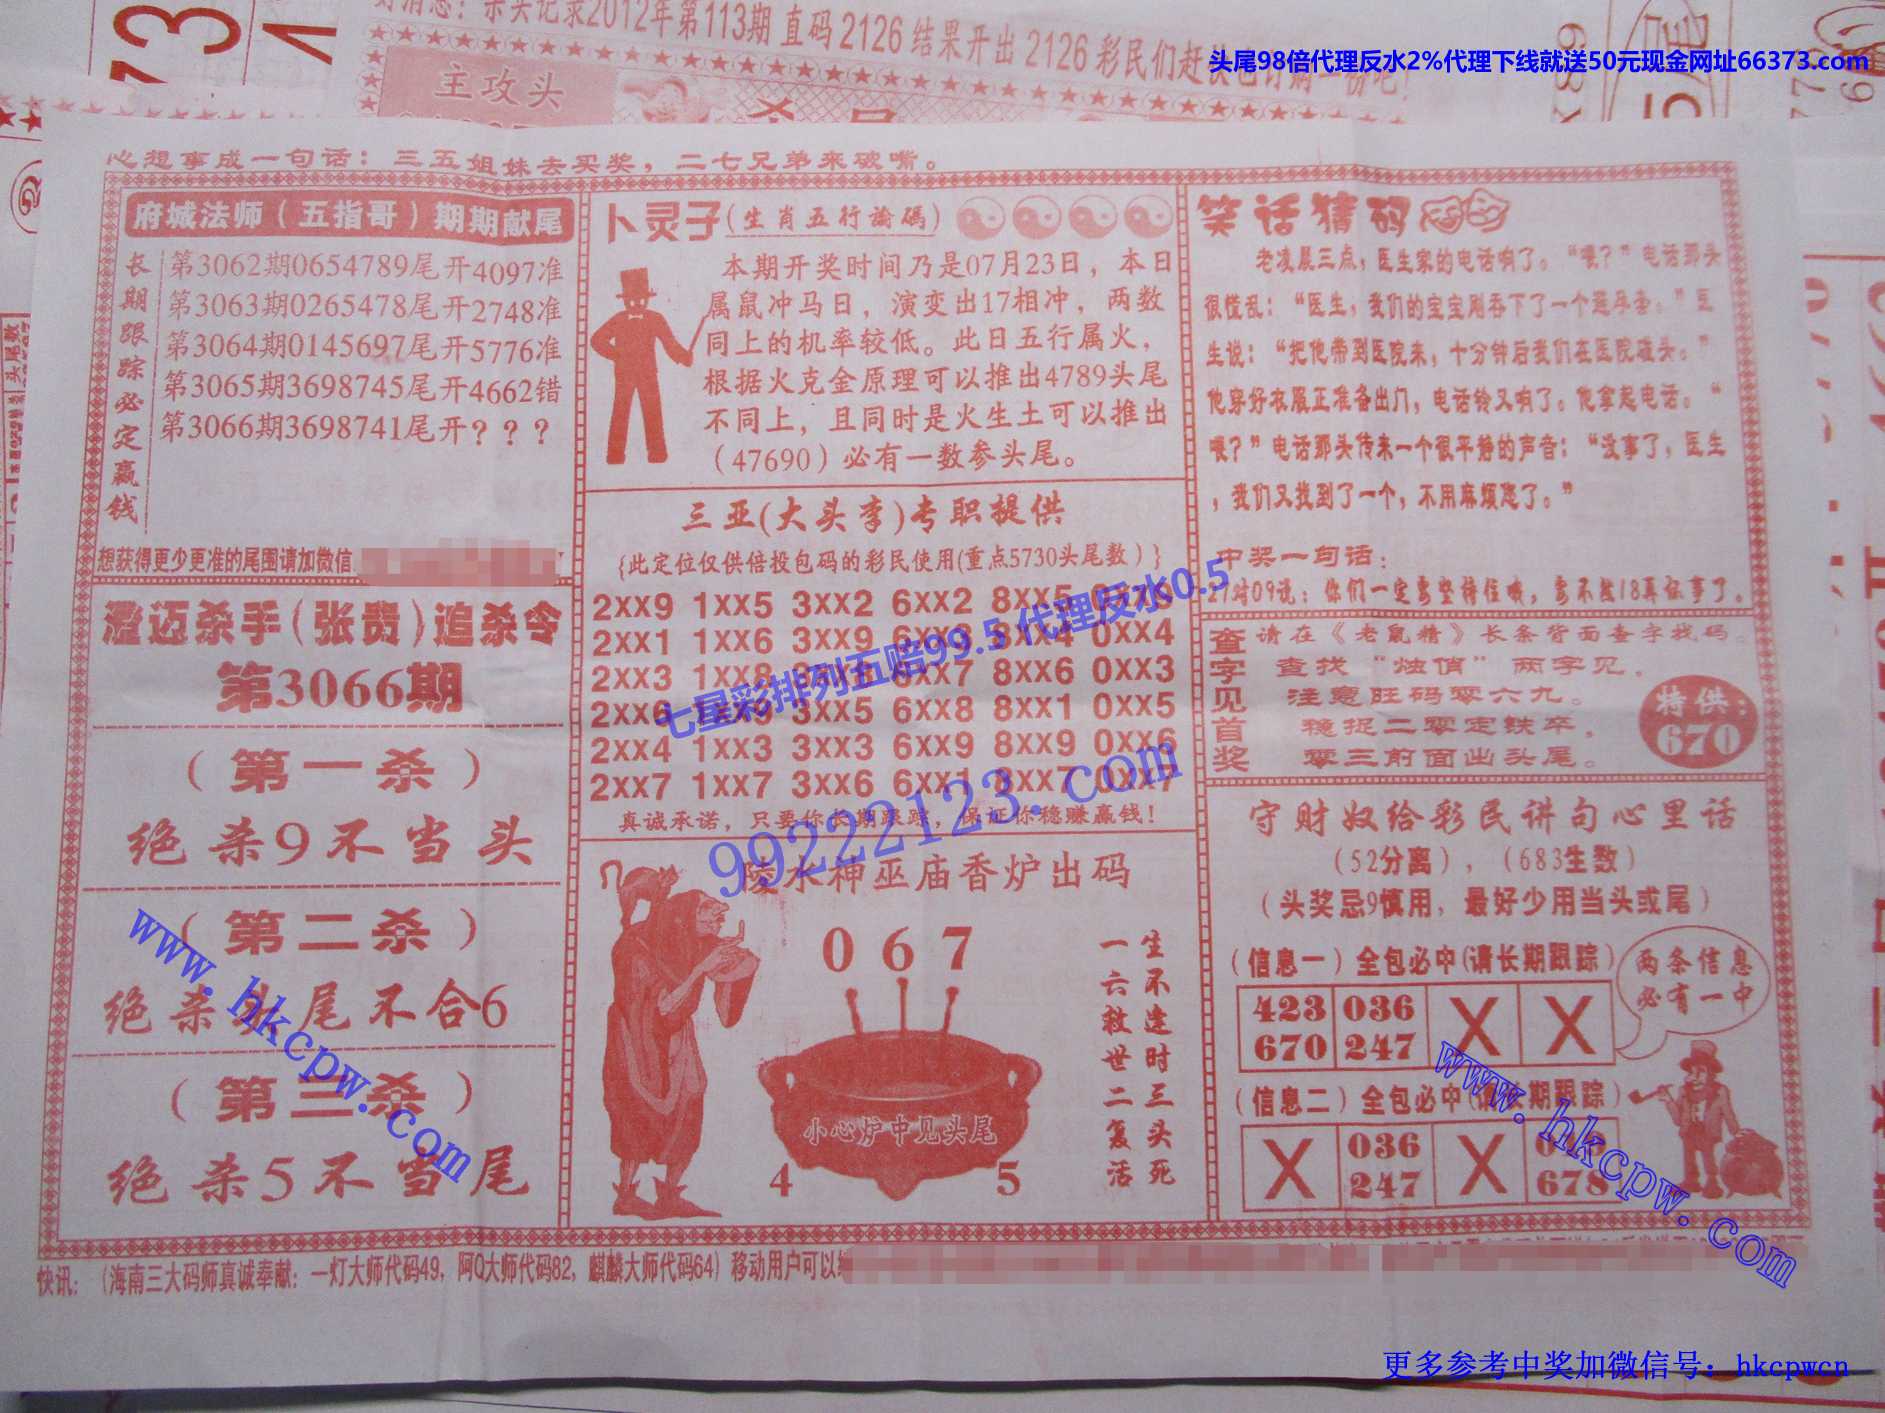 2012年第113期 直码 2126 结果开出 2126 彩民们赶
头尾98倍代理反水2%代理下线就送50元现金网址66373.com
主攻头
心想事成一句话：三五姐妹去买奖，二七兄弟来破嘴。
府城法师（五指哥）期期献尾
长期跟踪必定赢钱
第3062期0654789尾开4097准
第3063期0265478尾开2748准
第3064期0145697尾开5776准
第3065期3698745尾开4662错
第3066期3698741尾开？？？
想获得更少更准的尾图请加微信
澄迈杀手（张贵）追杀令
第3066期
（第一杀）
绝杀9不当头
（第二杀）
绝杀头尾不合6
（第三杀）
绝杀5不当尾
卜灵子（生肖五行论码）
本期开奖时间乃是07月23日，本日
属鼠冲马日，演变出17相冲，两数
同上的机率较低。此日五行属火，
根据火克金原理可以推出4789头尾
不同上，且同时是火生土可以推出
（47690）必有一数参头尾。
三亚(大头李)专职提供
{此定位仅供倍投包码的彩民使用(重点5730头尾数）}
2XX9 1XX5 3XX2 6XX2 8XX5
2XX1 1XX6 3XX9 8XX4 0XX4
2XX3 1XX8 8XX6 0XX3
2XX6 1XX9 3XX5 6XX8 8XX1 0XX5
2XX4 1XX3 3XX3 6XX9 8XX9 0XX6
2XX7 1XX7 3XX6 6XX1 8XX7 0XX7
真诚承诺，只要你长期跟踪，保证你稳赚赢钱！
七星彩排列五赔99.5 代理反水0.5
99222123.com
陵水神巫庙香炉出码
0 6 7
小心炉中见头尾
4 5
生不逢时三头死
一六救世二复活
笑话猜码
老凌晨三点，医生家的电话响了。“喂？”电话那头
很慌乱：“医生，我们的宝宝刚吞下了一个避孕套。”医
生说：“把他带到医院来，十分钟后我们在医院碰头。”
他穿好衣服正准备出门，电话铃又响了。他拿起电话。“
喂？”电话那头传来一个很平静的声音：“没事了，医生
，我们又找到了一个，不用麻烦您了。”
中奖一句话：
27对09说：你们一定要坚持住哦，要不然18再你事了。
查字见首奖
请在《老鼠精》长条背面查字找码。
查找“烛俏”两字见，
注意旺码零六九。
稳捉二零定铁卒，
零三前面出头尾。
特供：
670
守财奴给彩民讲句心里话
（52分离），（683生数）
（头奖忌9慎用，最好少用当头或尾）
（信息一）全包必中(请长期跟踪）
423 036 X X
670 247
两条信息
必有一中
（信息二）全包必中(请长期跟踪）
X 036 X
247 678
快讯：（海南三大码师真诚奉献：一灯大师代码49，阿Q大师代码82，麒麟大师代码64）移动用户可以
www.hkcpw.com
www.hkcpw.com
更多参考中奖加微信号：hkcpwcn